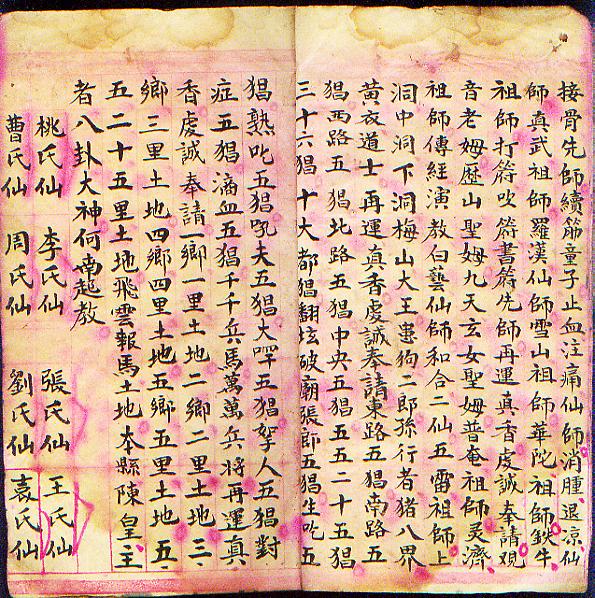 接骨先師續筋童子止血注痛仙師消腫退凉仙
師真武祖師羅漢仙師雪山祖師華陀祖師鉄牛
祖師打符吹符書符先師再運真香虔誠奉請观
音老姆歷山聖姆九天玄女聖姆普奄祖師灵濟
祖師傳經演教白藝仙師和合二仙五雷祖師上
洞中洞下洞梅山大王惠狗二郎孫行者猪八界
黄衣道士再運真香虔誠奉請東路五猖南路五
猖西路五猖北路五猖中央五猖五五二十五猖
三十六猖十大都猖翻坛破廟張郎五猖生吃五
猖熟吃五猖吼夫五猖大哹五猖拏人五猖對
症五猖滴血五猖千千兵馬萬萬兵將再運真
香虔誠奉請一鄉一里土地二鄉二里土地三
鄉三里土地四鄉四里土地五鄉五里土地五
五二十五里土地飛雲報馬土地本縣陳皇主
者八卦大神何南趙教
桃氏仙 李氏仙 張氏仙 王氏仙
曹氏仙 周氏仙 劉氏仙 袁氏仙